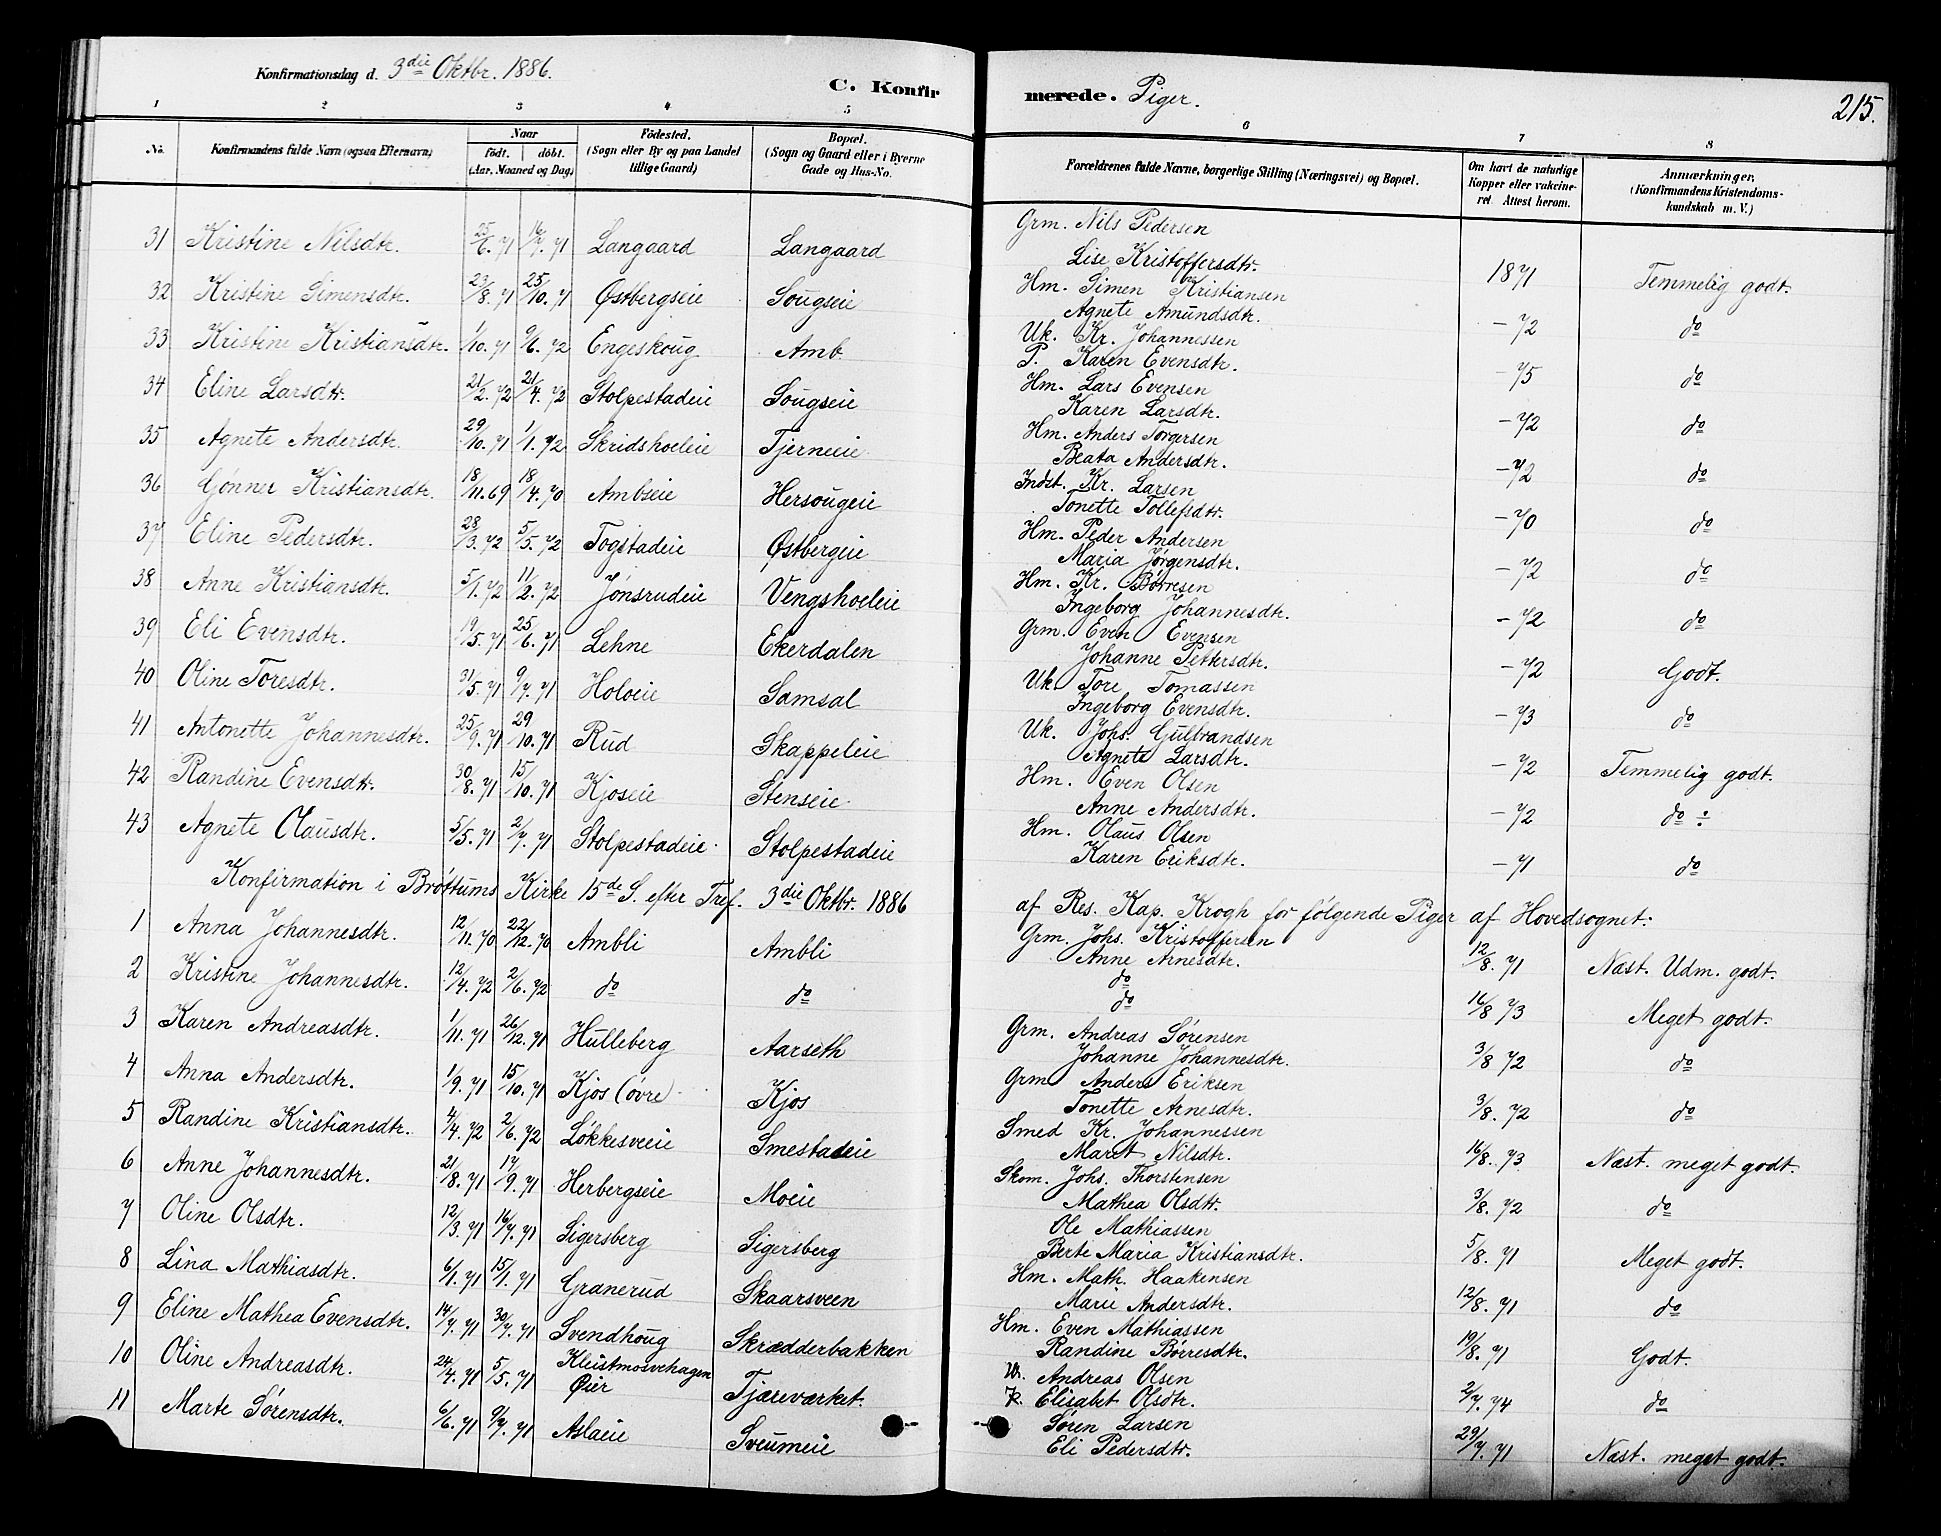 Konfirmationsdag d. 3die Oktbr. 1886.
C. Konfirmerede. Piger. 215.
1 2 3 4 5 6 7 8
No. Konfirmandens fulde Navn (ogsaa Efternavn) Naar født. døbt. (Aar, Maaned og Dag) Fødested. (Sogn eller By og paa Landet tillige Gaard) Bopæl. (Sogn og Gaard eller i Byerne Gade og Hus-No. Forældrenes fulde Navne, borgerlige Stilling (Næringsvei) og Bopæl. Om havt de naturlige Kopper eller vakcineret. Attest herom. Anmærkninger, (Konfirmandens Kristendomskundskab m. V.)
31 Kristine Nilsdtr. 25/6. 71 16/7. 71 Langaard Langaard Grm. Nils Pedersen Lise Kristoffersdtr. 1871 Temmelig godt.
32 Kristine Simensdtr. 23/8. 71 25/10. 71 Østbergseie Sougseie Hm. Simen Kristiansen Agnete Amundsdtr. - 72 do
33 Kristine Kristiansdtr. 1/10. 71 9/6. 72 Engeskoug Amb Uk. Kr. Johannessen P. Karen Evensdtr. - 75 do
34 Eline Larsdtr. 21/2. 72 21/4. 72 Stolpestadeie Sougseie Hm. Lars Evensen Karen Larsdtr. - 72 do
35 Agnete Andersdtr. 29/10. 71 1/1. 72 Skridshoeleie Tjerneie Hm. Anders Torgersen Beata Andersdtr. - 72 do
36 Gønner Kristiansdtr. 18/11. 69 18/4. 70 Ambseie Hersougeie Indst. Kr. Larsen Tonette Tollefsdtr. - 70 do
37 Eline Pedersdtr. 28/3. 72 5/5. 72 Togstadeie Østbergeie Hm. Peder Andersen Maria Jørgensdtr. - 72 do
38 Anne Kristiansdtr. 5/1. 72 11/2. 72 Jønsrudeie Vengshoeleie Hm. Kr. Børresen Ingeborg Johannesdtr. - 72 do
39 Eli Evensdtr. 19/5. 71 25/6. 71 Lehne Ekerdalen Grm. Even Evensen Johanne Pettersdtr. - 72 Godt.
40 Oline Toresdtr. 31/5. 71 9/7. 71 Holoeie Samsal Uk. Tore Tomassen Ingeborg Evensdtr. - 73 do
41 Antonette Johannesdtr. 25/9. 71 29/10. 71 Rud Skappeleie Uk. Johs. Gulbrandsen Agnete Larsdtr. - 72 Temmelig godt.
42 Randine Evensdtr. 30/8. 71 15/10. 71 Kjoseie Stenseie Hm. Even Olsen Anne Andersdtr. - 72 do ÷
43 Agnete Olausdtr. 5/5. 71 2/7. 71 Stolpestadeie Stolpestadeie Hm. Olaus Olsen Karen Eriksdtr. - 71 do
Konfirmation i Brøttums Kirke 15de S. efter Tref. 3die Oktbr. 1886 af Res. Kap. Krogh for følgende Piger af Hovedsognet:
1 Anna Johannesdtr. 12/11. 70 22/12. 70 Ambli Ambli Grm. Johs. Kristoffersen Anne Arnesdtr. 12/8. 71 Næst. Udm. godt.
2 Kristine Johannesdtr. 12/4. 72 2/6. 72 do do do do 16/8 73 Meget godt.
3 Karen Andreasdtr. 1/11. 71 26/12. 71 Hulleberg Aarseth Grm. Andreas Sørensen Johanne Johannesdtr. 3/8 72 do
4 Anna Andersdtr. 1/9. 71 15/10. 71 Kjos (øvre) Kjos Grm Anders Eriksen Tonette Arnesdtr. 3/8. 72 do
5 Randine Kristiansdtr. 4/4. 72 2/6. 72 Løkkesveie Smestadeie Smed Kr. Johannessen Marit Nilsdtr. 16/8. 73 Næst. meget godt.
6 Anne Johannesdtr. 21/8. 71 17/9. 71 Herbergseie Moeie Skom. Johs. Thorstensen Mathea Olsdtr. 3/8. 72 do
7 Oline Olsdtr. 12/3. 71 16/7. 71 Sigersberg Sigersberg Ole Mathiassen Berte Maria Kristiansdtr. 5/8. 71 Meget godt.
8 Lina Mathiasdtr. 6/1. 71 15/1. 71 Granerud Skaarsveen Hm. Math. Haakensen Marie Andersdtr. 12/8. 71 do
9 Eline Mathea Evensdtr. 14/7. 71 30/7. 71 Svendhoug Skrædderbakken Hm. Even Mathiassen Randine Børresdtr. 19/8. 71 Godt.
10 Oline Andreasdtr. 24/4. 71 5/5. 71 Kleistmosvehagen Øier Tjæreværket. Andreas Olsen Elisabet Olsdtr. 2/7. 74 do
11 Marte Sørensdtr. 6/6. 71 9/7. 71 Aslaeie Sveumeie Søren Larsen Eli Pedersdtr. 29/7. 71 Næst. meget godt.